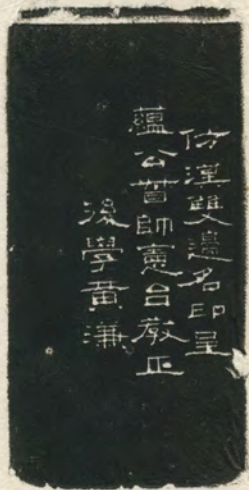 仿漢雙邊名印呈
蘊公督帥憲台教正
後學黃濂